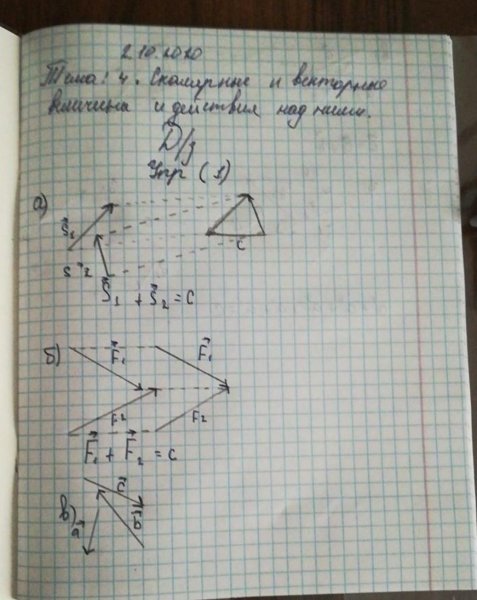 2.10.2020
Тема: 4. Скалярные и векторные
величина и действия над ними.
Д/з
Упр (1)
а)
S⃗₁
S⃗₂
C
S⃗₁ + S⃗₂ = C
б)
F⃗₁
F⃗₁
F₂
F₂
F⃗₁ + F⃗₂ = C
в)